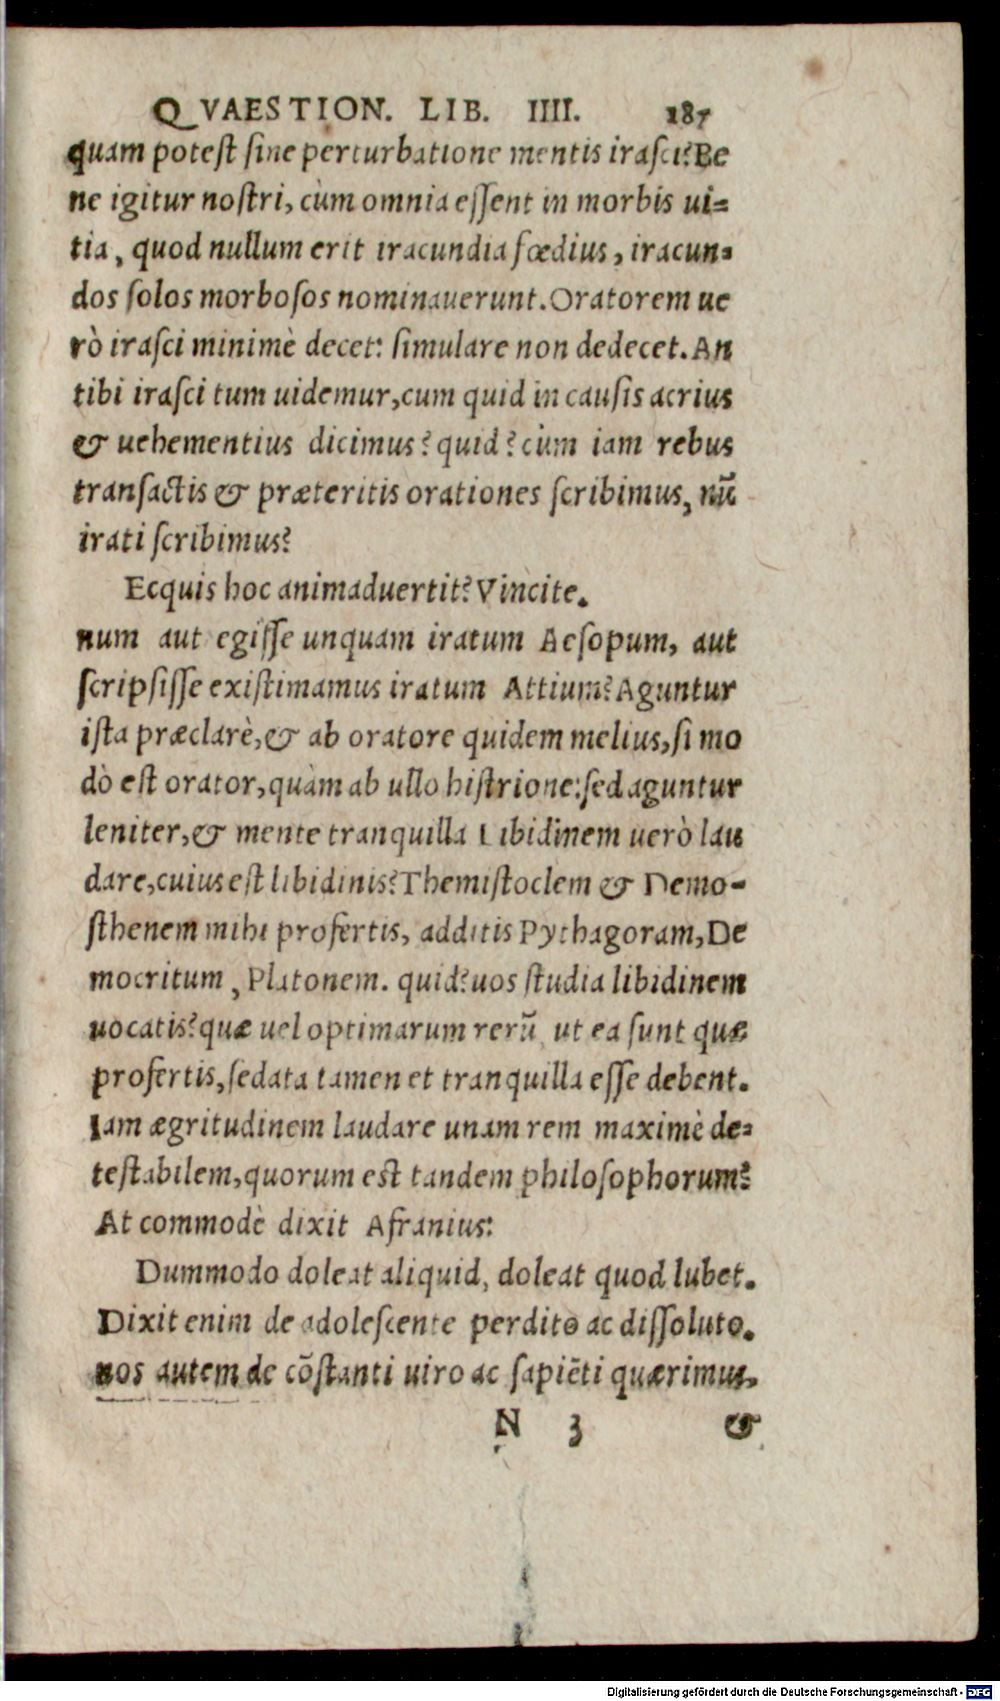 QVAESTION. LIB. IIII. 187
quam potest sine perturbatione mentis irasci? Be
ne igitur nostri, cùm omnia essent in morbis ui=
tia, quod nullum erit iracundia fœdius, iracun=
dos solos morbosos nominauerunt. Oratorem ue
rò irasci minimè decet: simulare non dedecet. An
tibi irasci tum uidemur, cum quid in causis acrius
& uehementius dicimus? quid? cùm iam rebus
transactis & præteritis orationes scribimus, nũ
irati scribimus?
Ecquis hoc animaduertit? Vincite.
num aut egisse unquam iratum Aesopum, aut
scripsisse existimamus iratum Attium? Aguntur
ista præclarè, & ab oratore quidem melius, si mo
dò est orator, quàm ab ullo histrione: sed aguntur
leniter, & mente tranquilla Libidinem uerò lau
dare, cuius est libidinis? Themistoclem & Demo-
sthenem mihi profertis, additis Pythagoram, De
mocritum, Platonem. quid? uos studia libidinem
uocatis? quæ uel optimarum rerũ ut ea sunt quæ
profertis, sedata tamen et tranquilla esse debent.
Iam ægritudinem laudare unam rem maximè de=
testabilem, quorum est tandem philosophorum?
At commodè dixit Afranius:
Dummodo doleat aliquid, doleat quod lubet.
Dixit enim de adolescente perdito ac dissoluto.
nos autem de cõstanti uiro ac sapiẽti quærimus,
N 3 &
Digitalisierung gefördert durch die Deutsche Forschungsgemeinschaft - DFG